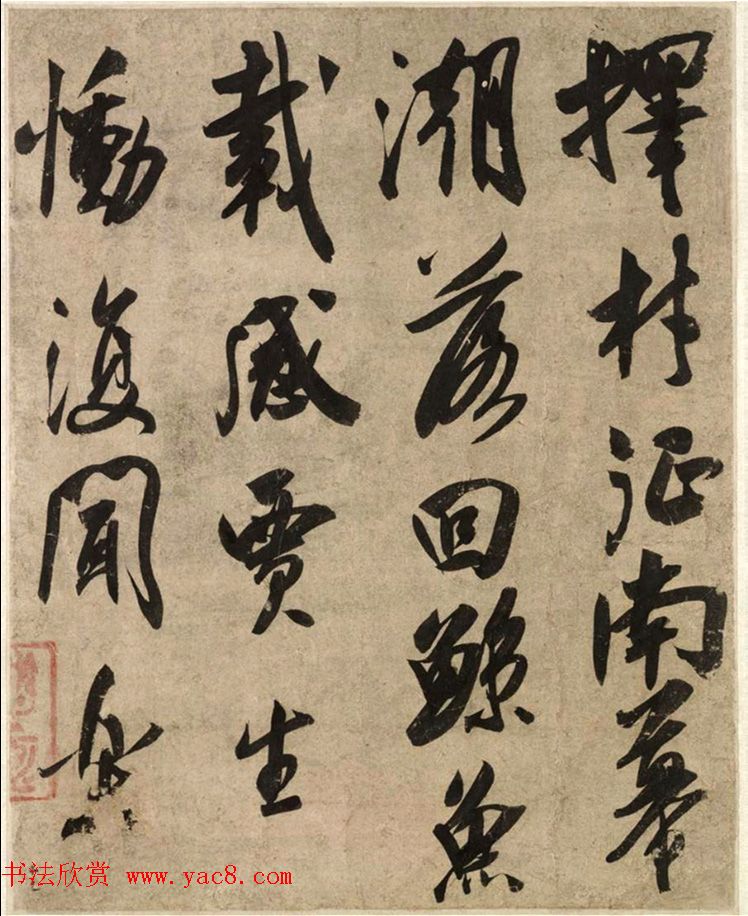 擇材征南幕
潮落回鯨魚
載感賈生
慟復聞樂
书法欣赏 www.yac8.com